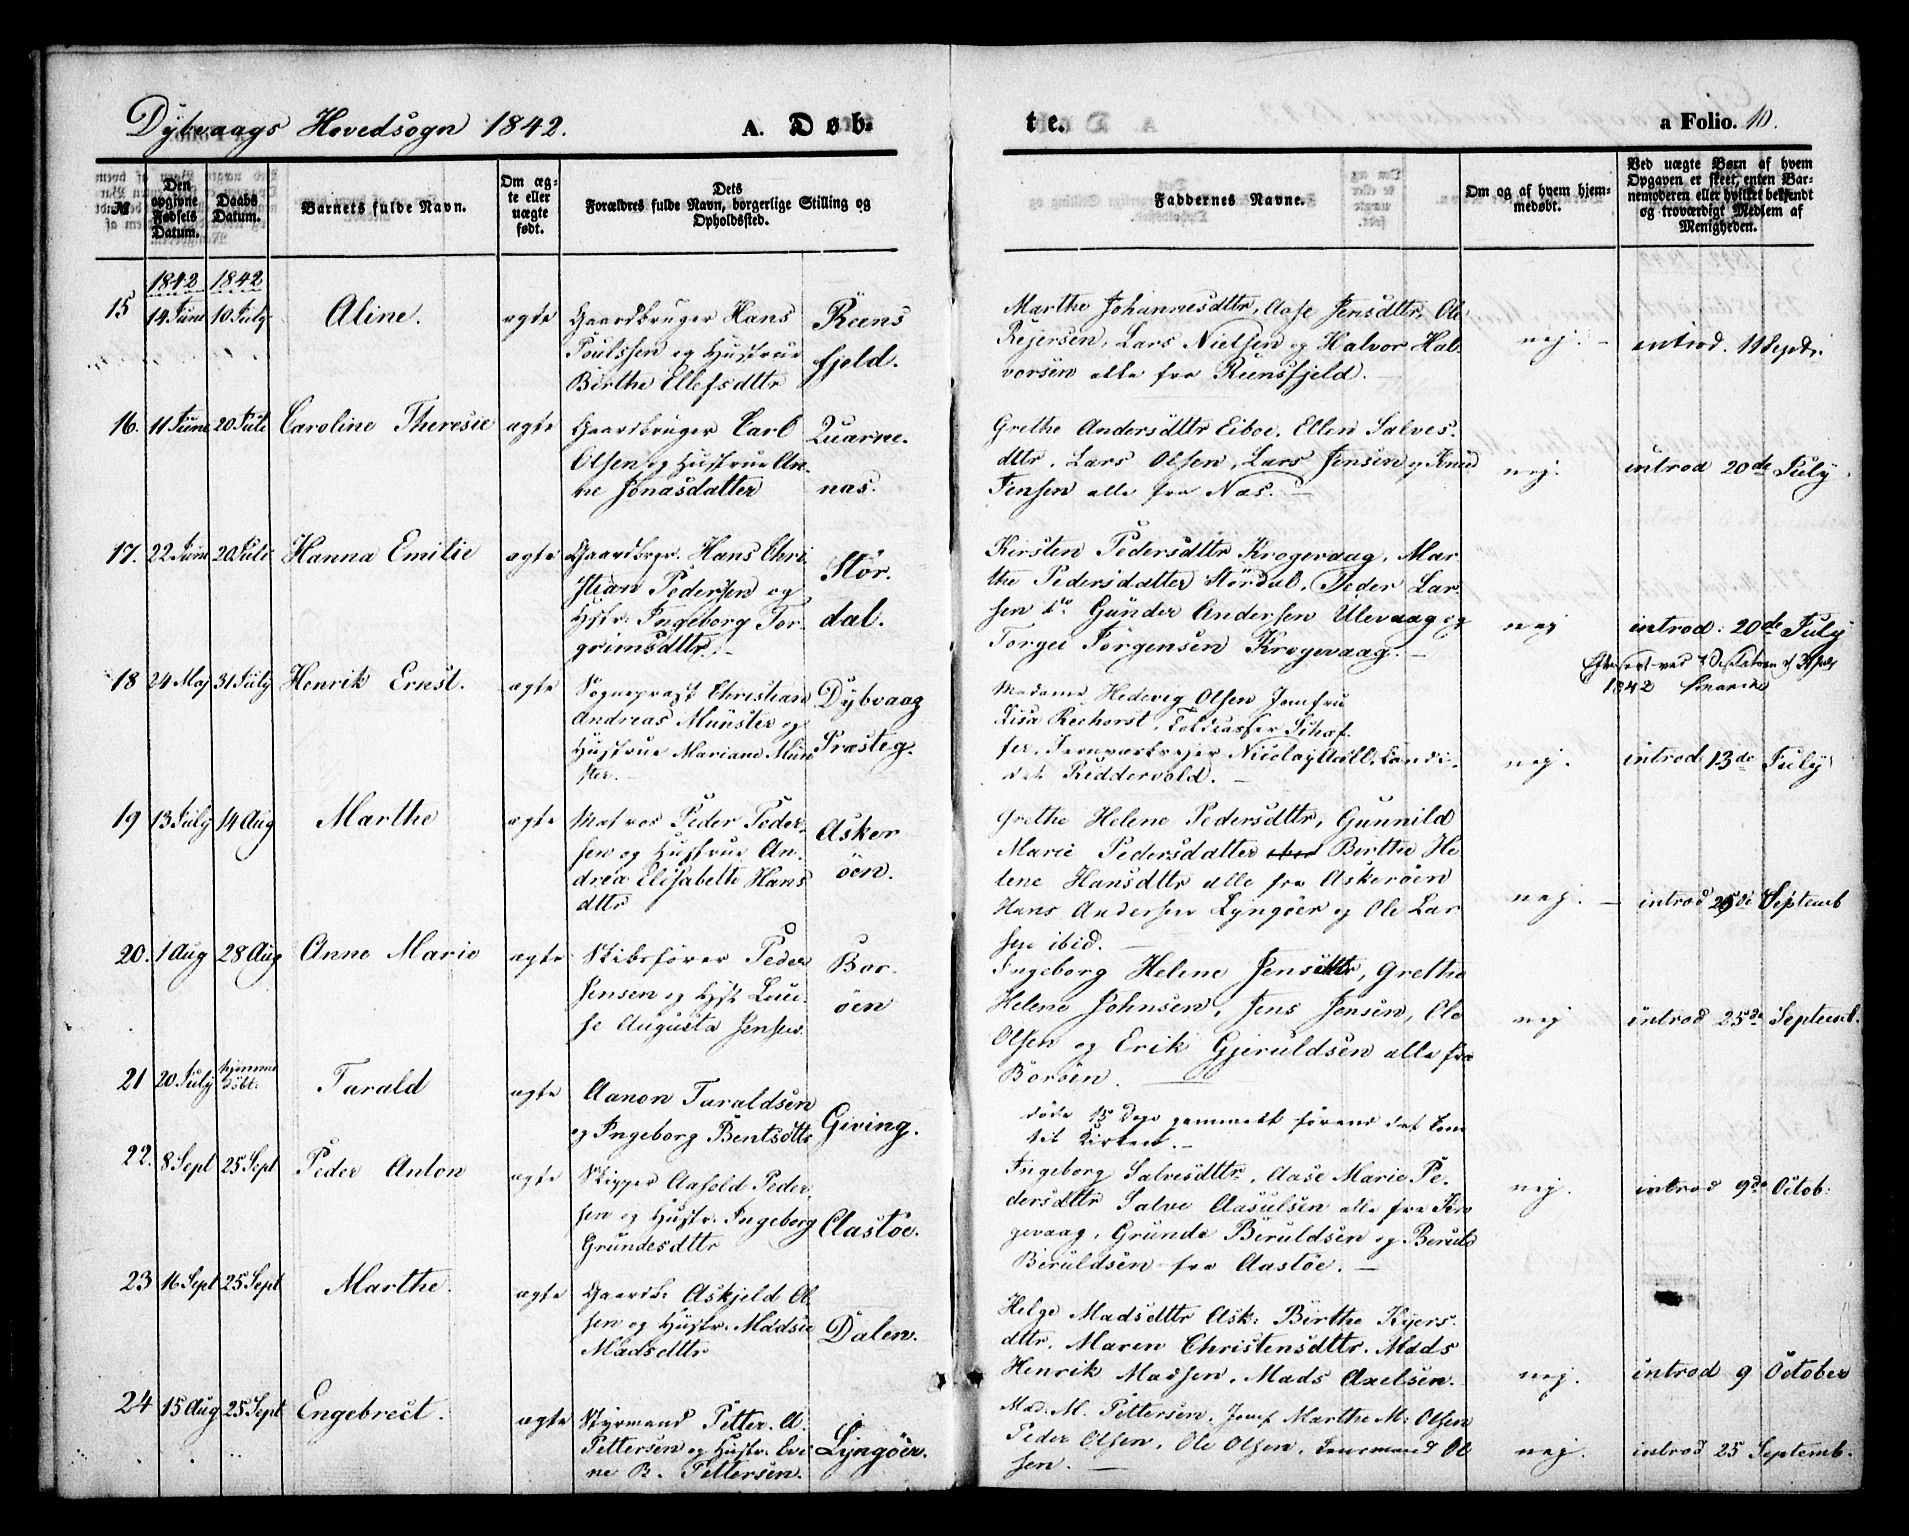 Dybvaags Hovedsogn 1842.
A. Døb-
te.
a Folio. 10.
№
Den opgivne Fødsels Datum.
Daabs Datum.
Barnets fulde Navn.
Om ægte eller uægte født.
Dets
Forældres fulde Navn, borgerlige Stilling og Opholdssted.
Faddernes Navne.
Om og af hvem hjemmedøbt.
Ved uægte Børn af hvem Opgaven er skeet, enten Barnemoderen eller hvilket bekjendt og troværdigt Medlem af Menigheden.
1842 1842
15 14 Juni 10 July Aline. ægte
Gaardbruger Hans
Poulssen og Hustrue
Birthe Ellefsdttr
Reens
fjeld.
Marthe Johannesdttr, Aase Jensdttr, Ole
Rejersen, Lars Nielsen og Halvor Hal-
vorsen alle fra Reensfjeld.
nej.
introd. 11 Septr.
16. 11 Juni 20 Juli Caroline Theresie ægte
Gaardbruger Carl
Olsen og Hustrue An-
ne Jonasdatter
Quarne-
nas.
Grethe Andersdttr Eiboe, Ellen Salves-
dttr, Lars Olsen, Lars Jensen og Knud
Jensen alle fra Næs.
nej.
introd 20de July
17. 22 Juni 20 Juli Hanna Emilie ægte
Gaardbrgr. Hans Chri-
stian Pedersen og
Hstr. Ingeborg Tor-
grimsdttr.
Stør-
dal.
Kirsten Pedersdttr Krogevaag, Mar-
the Pedersdatter Størdal, Peder Lar-
sen do Gunder Andersen Ulevaag og
Torgei Jørgensen Krogevaag.
nej
introd: 20de July
18 24 Maj 31 July Henrik Ernst. ægte
Sogneprest Christian
Andreas Münster og
Hustrue Mariane Mün-
ster.
Dybvaag
Præsteg.
Madame Hedevig Olsen Jomfru
Lisa Reichorst, Toldcasser Schøf-
fer, Jernværkseier Nicolay Aall, Candi-
dat Riddervold.
nej.
1842
introd 13de July
19 13 July 14 Aug Marthe ægte
Matros Peder Peder-
sen og Hustrue An-
drea Elisabette Hans
dttr
Asker
øen.
Grethe Helene Pedersdttr, Gunnild
Marie Pedersdatter Berthe He-
lene Hansdttr alle fra Askerøen
Hans Andersen Lyngøer og Ole Lar-
sen ibid.
nej.
introd 25de Septemb
20. 1 Aug 28 Aug Anne Marie ægte
Skibsfører Peder
Jensen og Hst Loui-
se Augusta Jensen.
Bor-
øen
Ingeborg Helene Jensdttr, Grethe
Helene Johnsen, Jens Jensen, Ole
Olsen og Erik Gjeruldsen alle fra
Borøen.
nej
introd 25de Septemb.
21 20 July hjemme døbt. Tarald ægte
Aanon Taraldsen
og Ingeborg Bentsdttr
Giving.
døde 15 Dage gammelt førend det kom
til Kirken.
22. 8 Sept 25 Sept Peder Anton ægte
Skipper Aafeld Peder-
sen og Hustr. Ingeborg
Grundesdttr
Aastøe.
Ingeborg Salvesdttr, Aase Marie Pe-
dersdttr Salve Aasulsen alle fra Kro
gevaag, Grunde Beruldsen og Beruld
Beruldsen fra Aastøe.
nej.
introd 9de Octob:
23 16 Sept 25 Sept Marthe. ægte
Gaardb. Askjeld Ol-
sen og Hustr. Madsie
Madsdttr
Dalen.
Helge Madsdttr Ask: Birthe Kjers-
dttr, Maren Christensdttr. Mads
Henrik Madsen, Mads Axelsen.
nej.
introd 9 October
24 15 Aug 25 Sept Engebrect. ægte
Styrmand Petter A.
Pettersen og Hustr. Evi-
ne B. Pettersen.
Lyngøer.
Mad. M. Pettersen, Jomf Marthe M: Olsen
Peder Olsen, Ole Olsen, Ol-
sen.
nej.
introd 25 Septemb.